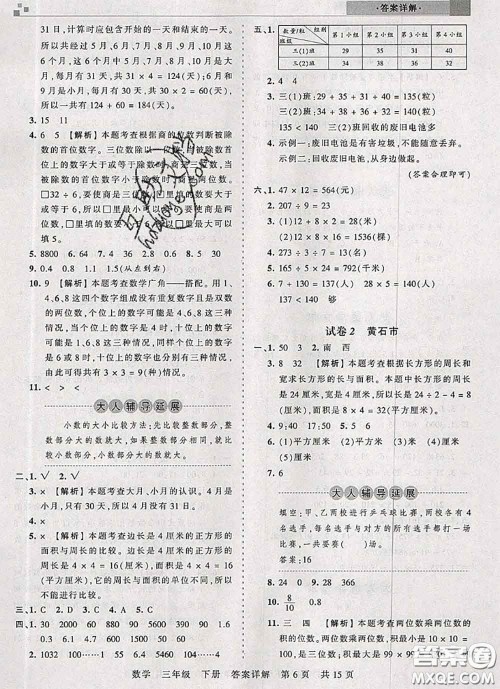 ·答案详解·
31 日，计算时应包含开始的一天和结束的一天。
所以共经过 5 月、6 月、7 月、8 月、9 月、10 月这
六个月，其中 5 月、7 月、8 月、10 月每个月都是
31 天，四个月共 31 × 4 = 124（天）；6 月和 9 月
是小月，每月是 30 天，两个月共 30 × 2 = 60（天）。
所以一共有 124 + 60 = 184（天）。
3. 15　11
4. 6　5　【解析】本题考查根据商的位数判断被除
数的首位数字。三位数除以一位数，被除数首位
上的数字大于或等于除数，商是三位数；被除数
首位上的数字小于除数，商是两位数。
□32 ÷ 6，要使商是三位数，□里填的数要大于
或等于 6，所以□里最小填 6；要使商是两位数，
□里填的数要小于 6，□里填的数最大是 5，所以可以
填 5。
5. 8800　64　6. 30　7. 40　8. 70
9. 0.4　0.8　1.1　1.5（从左到右）
10. 9　【解析】本题考查数学广角——搭配。用 1、
4、6、8 这四个数字组成没有重复数字且是双数
的两位数，个位上的数字可以是 4、6、8 三种情
况，当个位上的数字是 4 时，十位上的数字可能
是 1、6、8，所以此时有三种可能，同样个位上的数
字是 6 或 8 时，十位上的数字也分别有三种情况，
所以共有 3 × 3 = 9（种）情况。
11. ＜　＞　＜
大人辅导延展
小数的大小比较方法：先比较整数部分，整
数部分大的就大，如果整数部分相同，就比
较小数部分，小数部分大的就大。
二、1. √　2. √
3. ×　【解析】本题考查大月、小月的认识。4 月、6
月、9 月、11 月是小月。
4. ×
5. ×　【解析】本题考查边长是 4 厘米的正方形的
面积与周长的比较。边长为 4 厘米的正方形，周
长是 4 × 4 = 16（厘米），面积是 4 × 4 = 16
（平方厘米），它们大小一样，但单位不同，所以不
能进行比较。
三、1. C　2. D　3. C　4. A　5. C
四、1. 280　900　20　2000　0.9　6.2　30
1500　7　0　630　4.5
2. 1032　100……4　1380　66……5　1540
五、1.
数量/粒　组别　班组　第 1 小组　第 2 小组　第 3 小组　第 4 小组
三(1)班　29　35　31　40
三(2)班　34　38　36　32
2. 4　1
3. 三(1)班：29 + 35 + 31 + 40 = 135（粒）
三(2)班：34 + 38 + 36 + 32 = 140（粒）
135 ＜ 140　三(2)班回收的废旧电池多
4. 示例一：废旧电池是有害垃圾，不能随意丢弃。
示例二：回收废旧电池，是爱护环境的表现。
（答案合理即可）
六、1. 47 × 12 = 564（元）
2. 207 ÷ 9 = 23（分）
3. 273 ÷ 3 ÷ 7 = 13（只）
4. 24 × 30 = 720（平方米）
5. 165 + 257 × 2 + 113 = 792（千米）
6. 245 ÷ 5 = 49（厘米）　49 + 88 = 137（厘米）
137 ＜ 140　够
试卷 2　黄石市
一、1. 50　30　2. 南　西
3. 8　32　【解析】本题考查根据长方形的周长和
宽求长方形的长与面积。长方形的周长是 24 厘
米，宽是 4 厘米，所以长为 24 ÷ 2 - 4 = 8（厘米），
面积为 8 × 4 = 32（平方厘米）。
4. (1)平方厘米　(2)平方米　(3)厘米
(4)厘米　5. 4
6. (1)＜　(2)＝　(3)＞　(4)＞
7. 6
大人辅导延展
填空：甲、乙两校进行乒乓球比赛，两校各有 4
名选手，每一方的选手与对方的所有选手都打一
场，一共要打（　　）场。
答案：16
8. 24　0　9. 28　366
10. 8/10　0.8
11. 三　四　【解析】本题考查两位数乘两位数的
积的位数。两位数乘两位数积最小是 10 × 10 =
数学　三年级　下册　答案详解　第 6 页　共 15 页